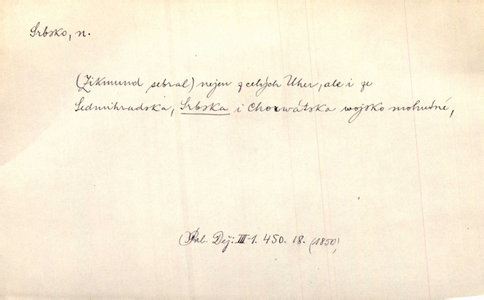 Srbsko, n.
(Zikmund sebral) nejen z celých Uher, ale i ze
Sedmihradska, Srbska i Chorwátska wojsko mohutné,
(Pal. Děj. III-1. 450. 18. (1850)